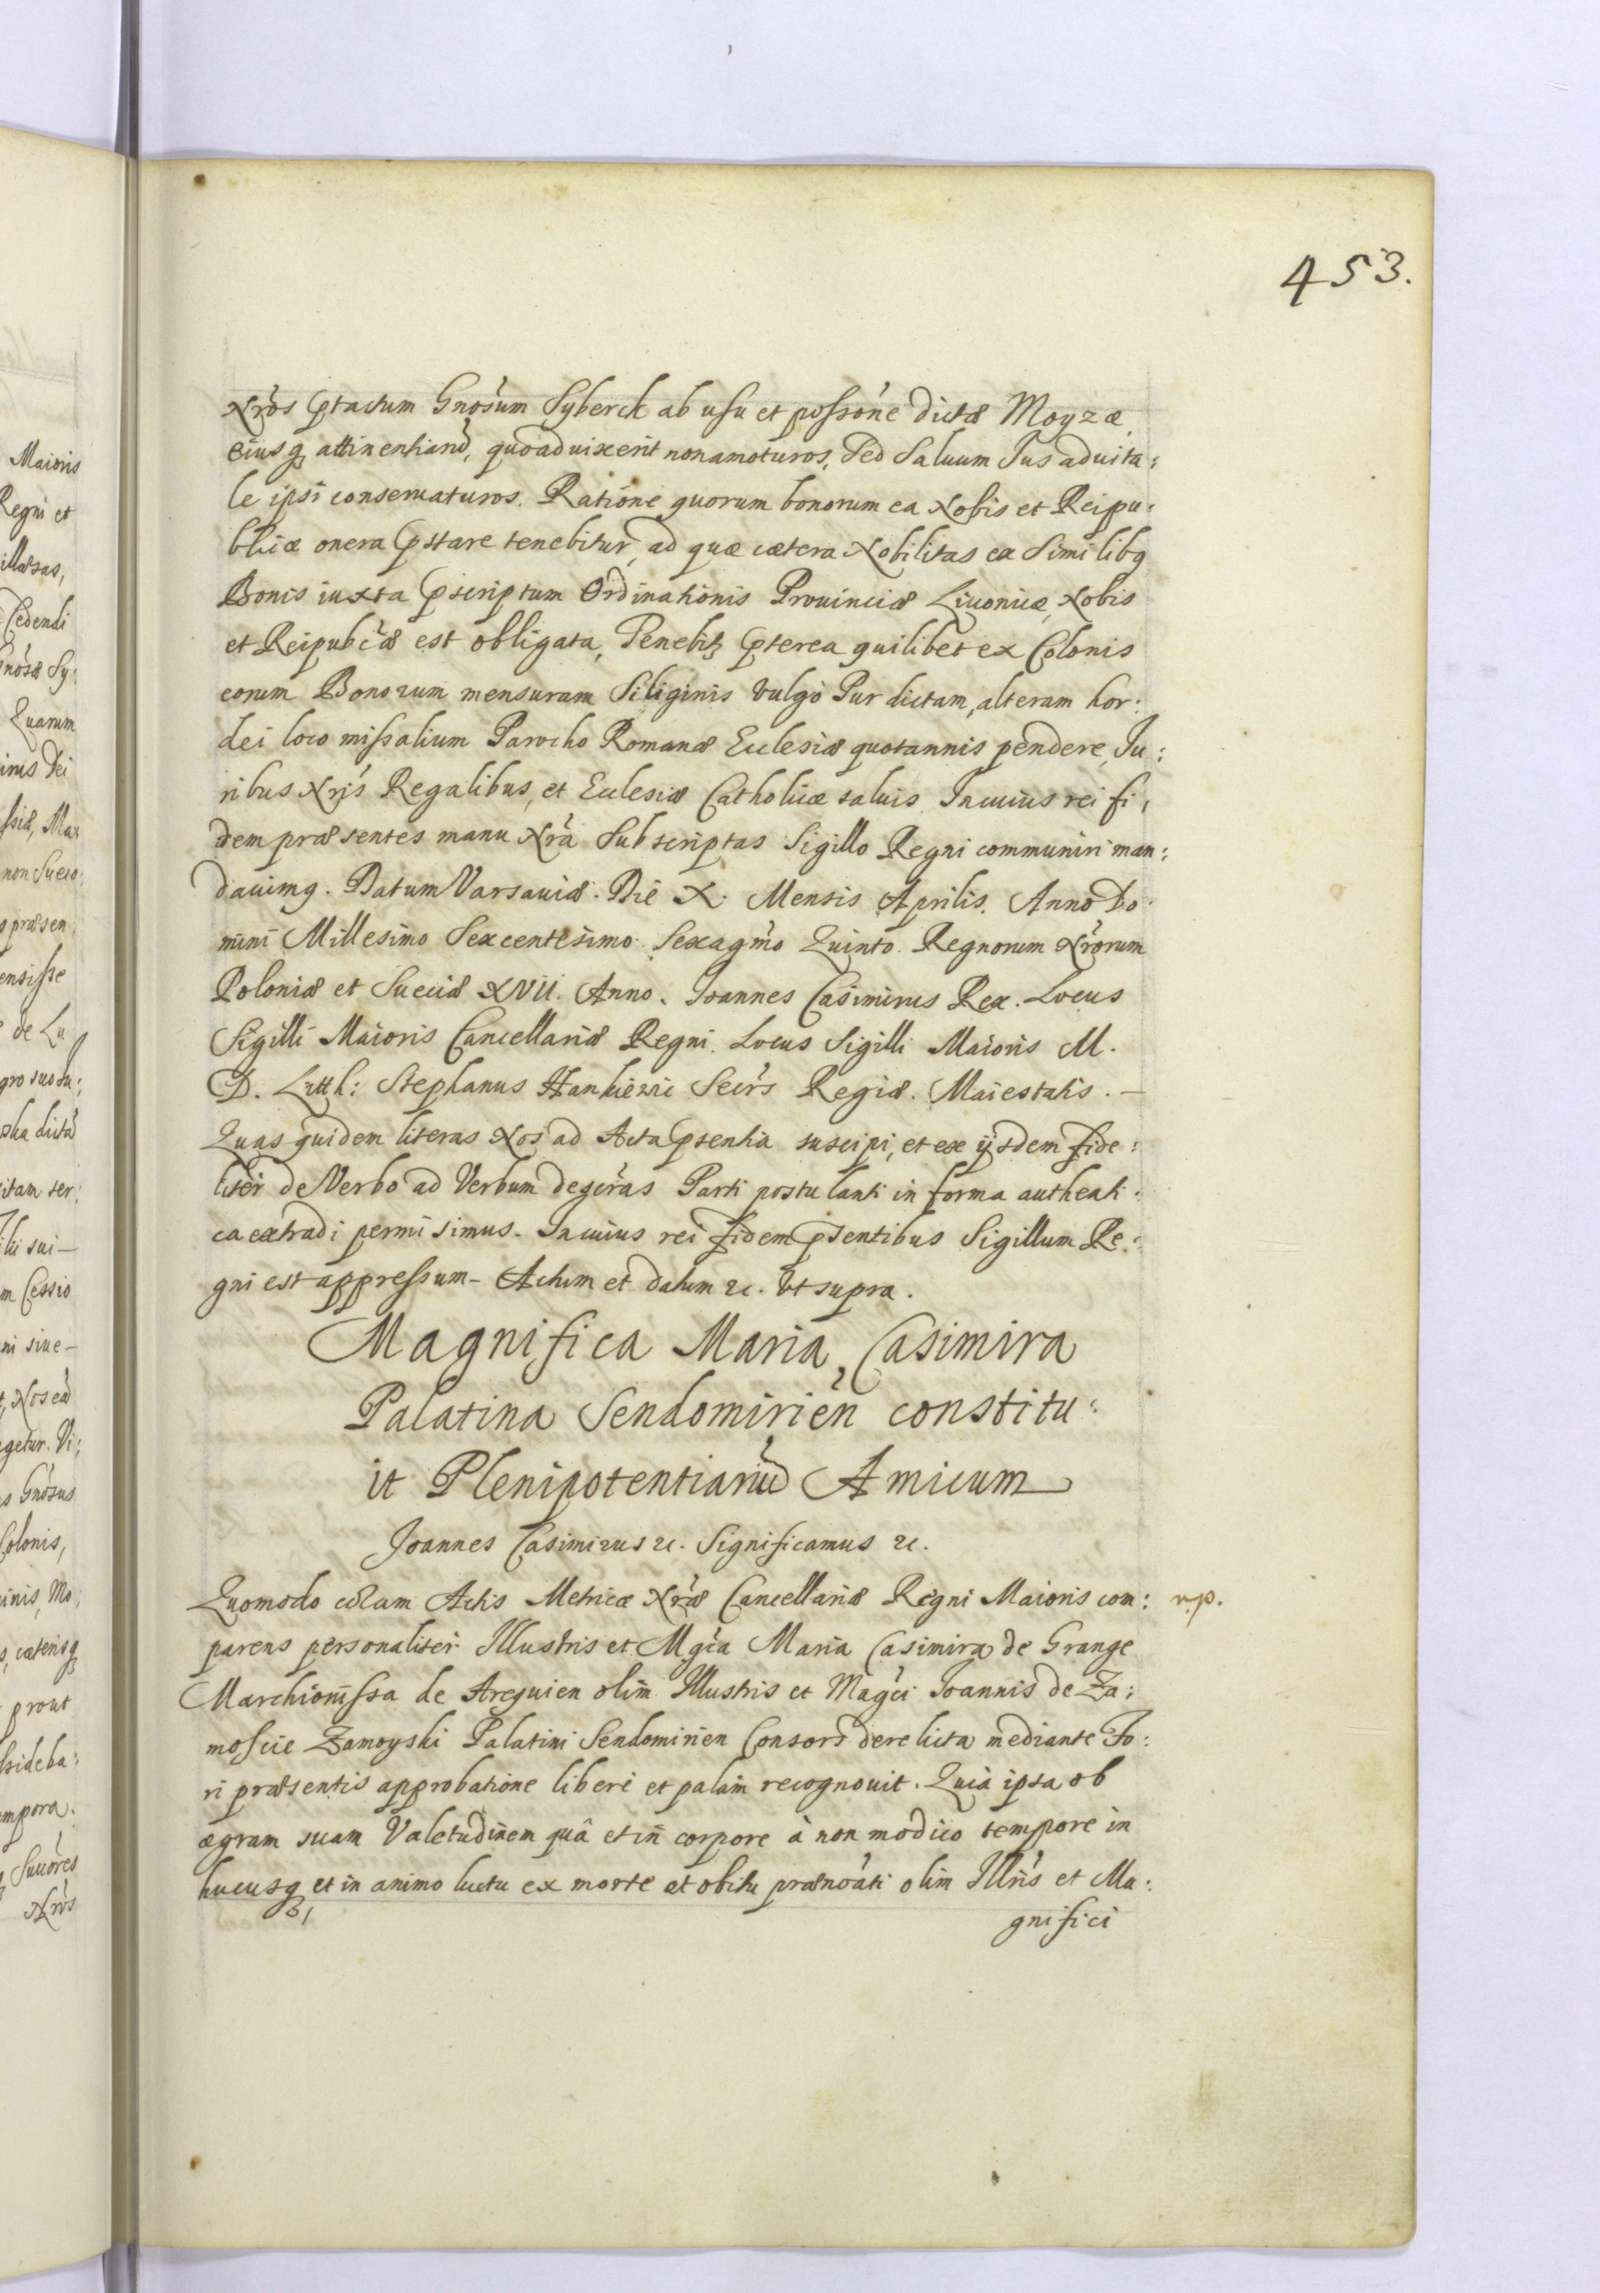 453.
Nros ptactum Gnosum Syberck ab usu et possone dictæ Moyzæ
eiusq attinentiarũ, quoad uixerit non amoturos, Sed Saluum Jus aduita:
le ipsi conseruaturos. Ratione quorum bonorum ea Nobis et Reipu:
blicæ onera pstare tenebitur, ad quæ cætera Nobilitas ex Similibq
Bonis iuxta pscriptum Ordinationis Prouinciæ Liuonicæ, Nobis
et Reipubcæ est obligata, Tenebitz pterea quilibet ex Colonis
eorum Bonorum mensuram Siliginis vulgò Pur dictam, alteram hor:
dei loco missalium Parocho Romanæ Ecclesiæ quotannis pendere, Ju:
ribus Nris Regalibus, et Ecclesiæ Catholicæ saluis. In cuius rei fi,
dem præsentes manu Nra Subscriptas Sigillo Regni communiri man:
dauimq. Datum Varsauiæ. Die X. Mensis Aprilis. Anno Do
mini Millesimo Sexcentesimo Sexagmo Quinto. Regnorum Nrorum
Poloniæ et Sueciæ XVII. Anno. Joannes Casimirus Rex. Locus
Sigilli Maioris Cancellariæ Regni. Locus Sigilli Maioris M.
D. Litth: Stephanus Hankiewic Secrs Regiæ. Maiestatis. —
Quas quidem literas Nos ad Acta psentia suscipi, et ex ijsdem fide:
liter de Verbo ad Verbum descras Parti postulanti in forma authenti:
ca extradi permisimus. In cuius rei fidem psentibus Sigillum Re:
gni est appressum – Actum et datum &c. Vt supra.
Magnifica Maria Casimira
Palatina Sendomirien constitu:
it Plenipotentiariũ Amicum
Joannes Casimirus &c. Significamus &c.
Quomodo coram Actis Metricæ Nræ Cancellariæ Regni Maioris com: r.p.
parens personaliter Illustris et Mgca Maria Casimira de Grange
Marchionissa de Arquien olim Illustris et Magci Joannis de Za:
moscie Zamoyski Palatini Sendomirien Consors derelicta mediante Fo:
ri præsentis approbatione liberè et palàm recognouit. Quia ipsa ob
ægram suam Valetudinem quâ et in corpore à non modico tempore in
hucusq, et in animo luctu ex morte et obitu prænoati olim Illris et Ma:
gnifici